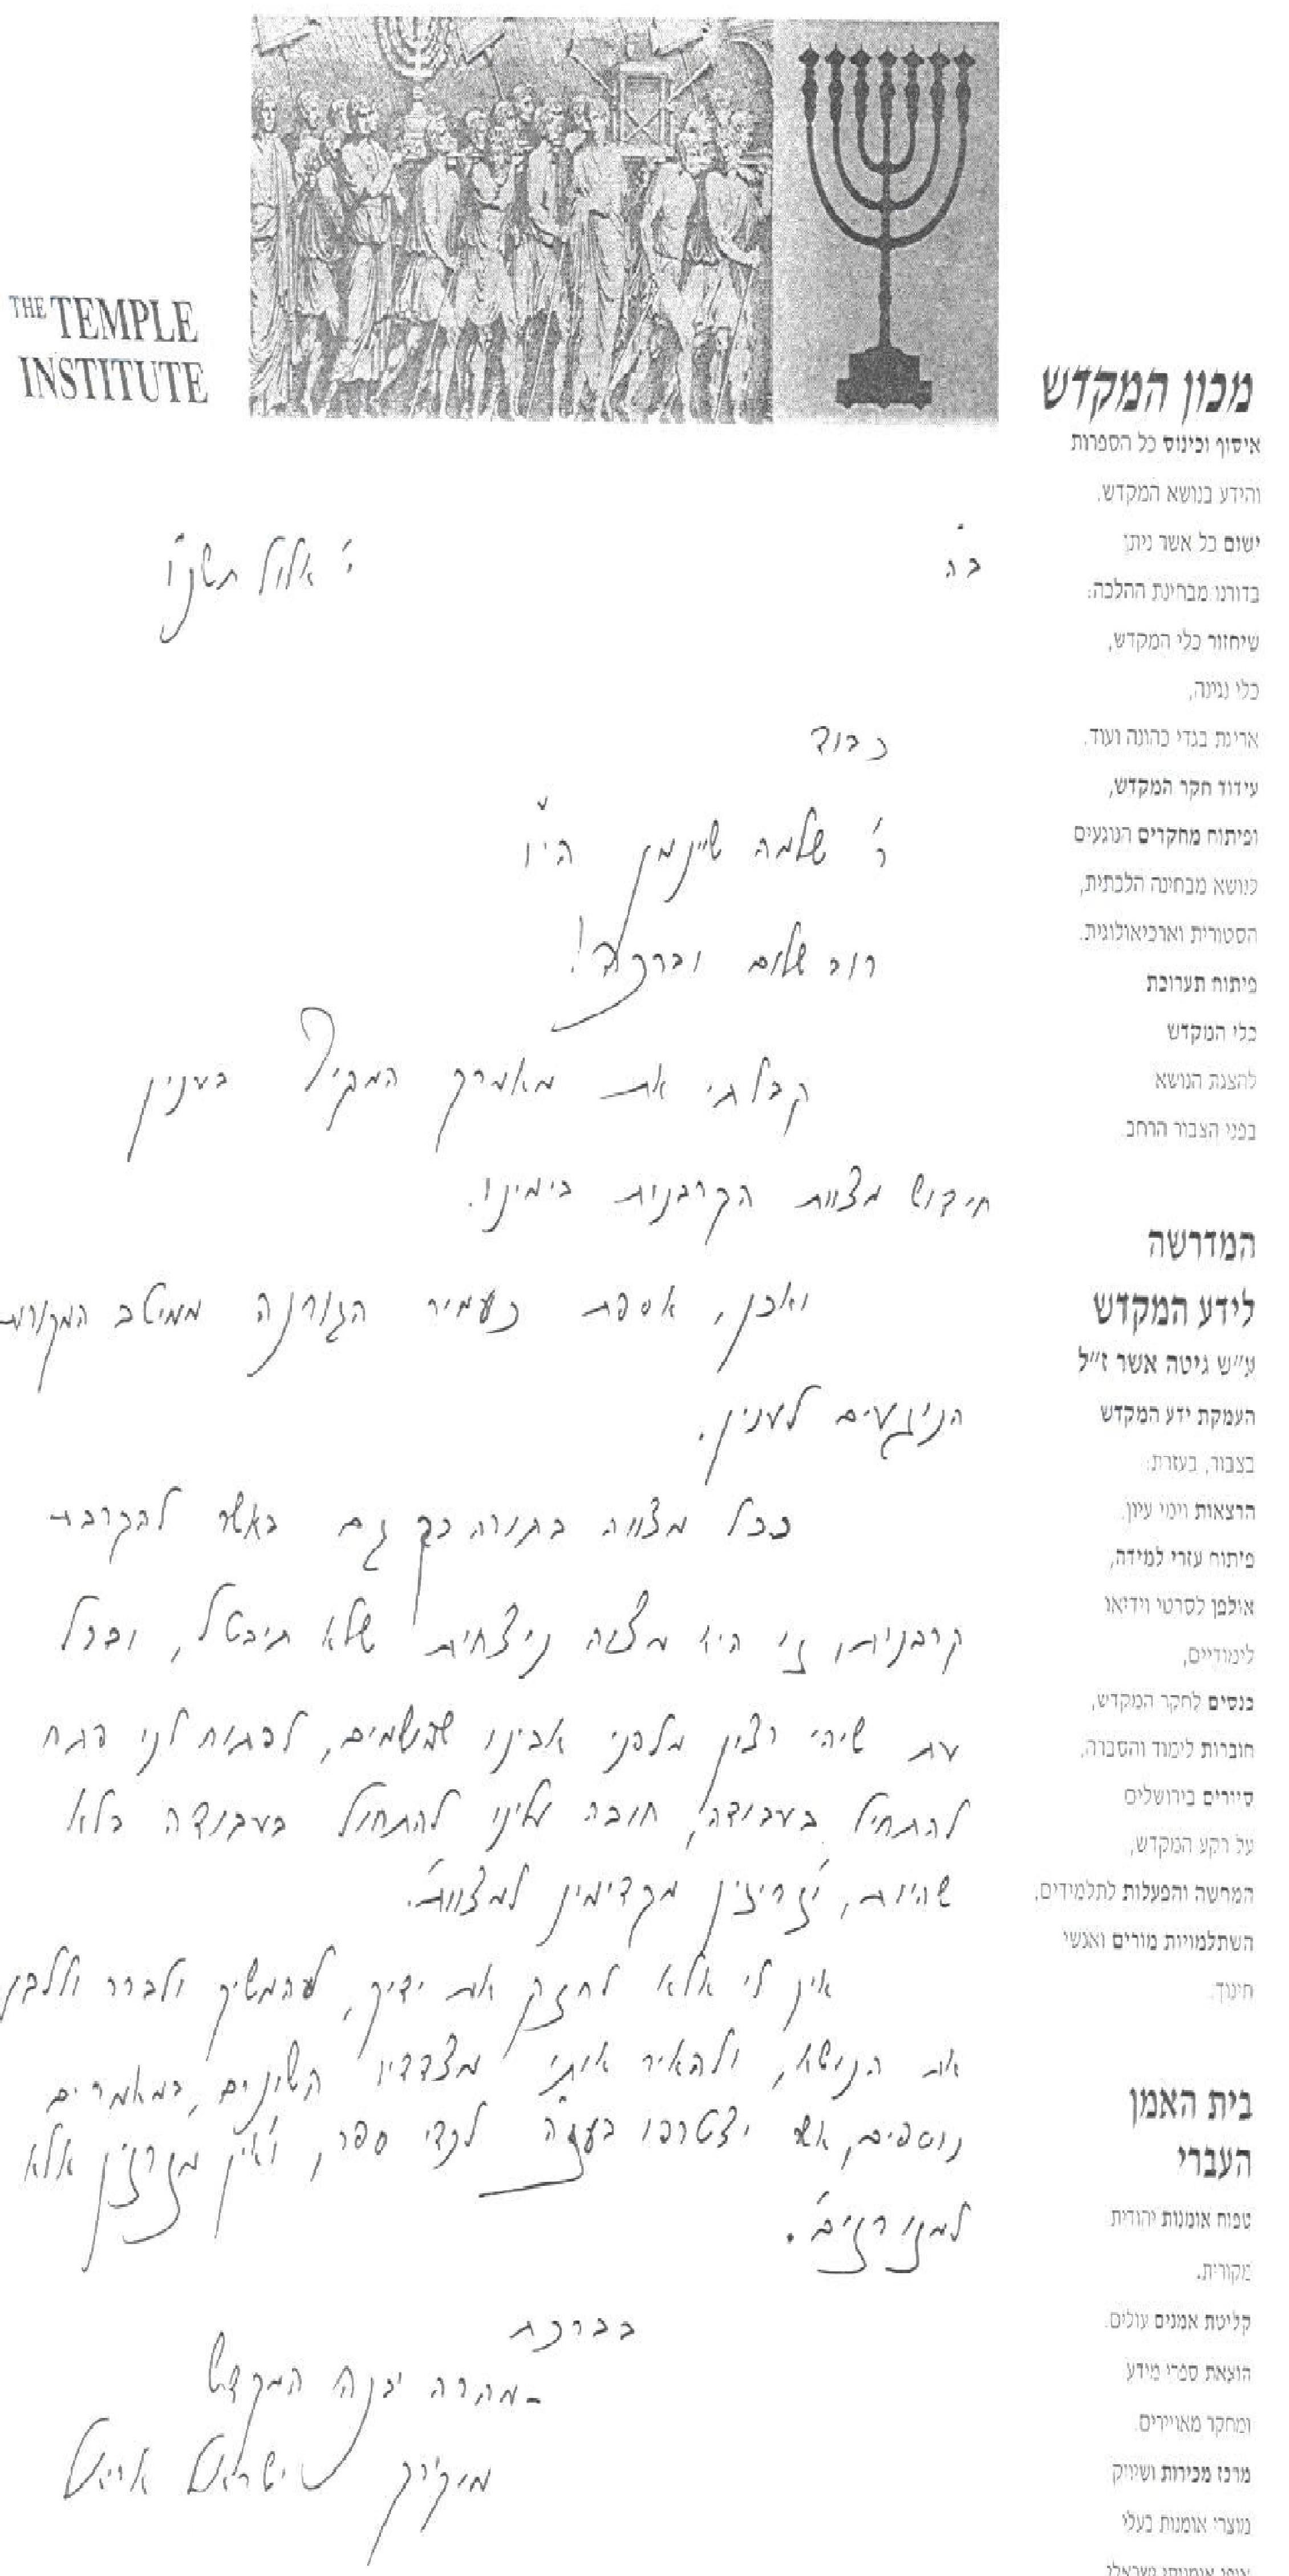 THE TEMPLE
INSTITUTE
מכון המקדש
איסוף וכינוס כל הספרות
והידע בנושא המקדש.
ישום כל אשר ניתן
בדורנו מבחינת ההלכה:
שיחזור כלי המקדש,
כלי נגינה,
אריגת בגדי כהונה ועוד.
עידוד חקר המקדש,
ופיתוח מחקרים הנוגעים
לנושא מבחינה הלכתית,
הסטורית וארכיאולוגית.
פיתוח תערוכת
כלי המקדש
להצגת הנושא
בפני הצבור הרחב
המדרשה
לידע המקדש
ע״ש גיטה אשר ז״ל
העמקת ידע המקדש
בצבור, בעזרת:
הרצאות וימי עיון,
פיתוח עזרי למידה,
אולפן לסרטי וידיאו
לימודיים,
כנסים לחקר המקדש,
חוברות לימוד והסברה,
סיורים בירושלים
על רקע המקדש,
המחשה והפעלות לתלמידים,
השתלמויות מורים ואנשי
חינוך.
בית האמן
העברי
טפוח אומנות יהודית
מקורית.
קליטת אמנים עולים.
הוצאת ספרי מידע
ומחקר מאויירים.
מרכז מכירות ושיווק
מוצרי אומנות בעלי
ב״ה
י׳ אלול תשנ״ו
כבוד
ר׳ שלמה שיינמן הי״ו
רוב שלום וברכה!
קבלתי את מאמרך המקיף בענין
חידוש מצוות הקרבנות בימינו.
ואכן, אספת כעמיר הגורנה ממיטב המקורות
הנוגעים לענין.
ככל מצווה בתורה כך גם באשר להקרבת
קרבנות, זו היא מצוה ניצחית שלא תיבטל, ובכל
עת שיהי רצון מלפני אבינו שבשמים, לפתוח לנו פתח
להתחיל בעבודה, חובה עלינו להתחיל בעבודה בלא
שהיות, ׳זריזין מקדימין למצוות׳.
אין לי אלא לחזק את ידיך, להמשיך ולברר וללבן
את הנושא, ולהאיר אותו מצדדיו השונים, במאמרים
נוספים, אשר יצטרפו בעז״ה לכדי ספר, ו׳אין מזרזין אלא
למזורזים׳.
בברכת
מהרה יבנה המקדש
מוקירך ישראל אריאל